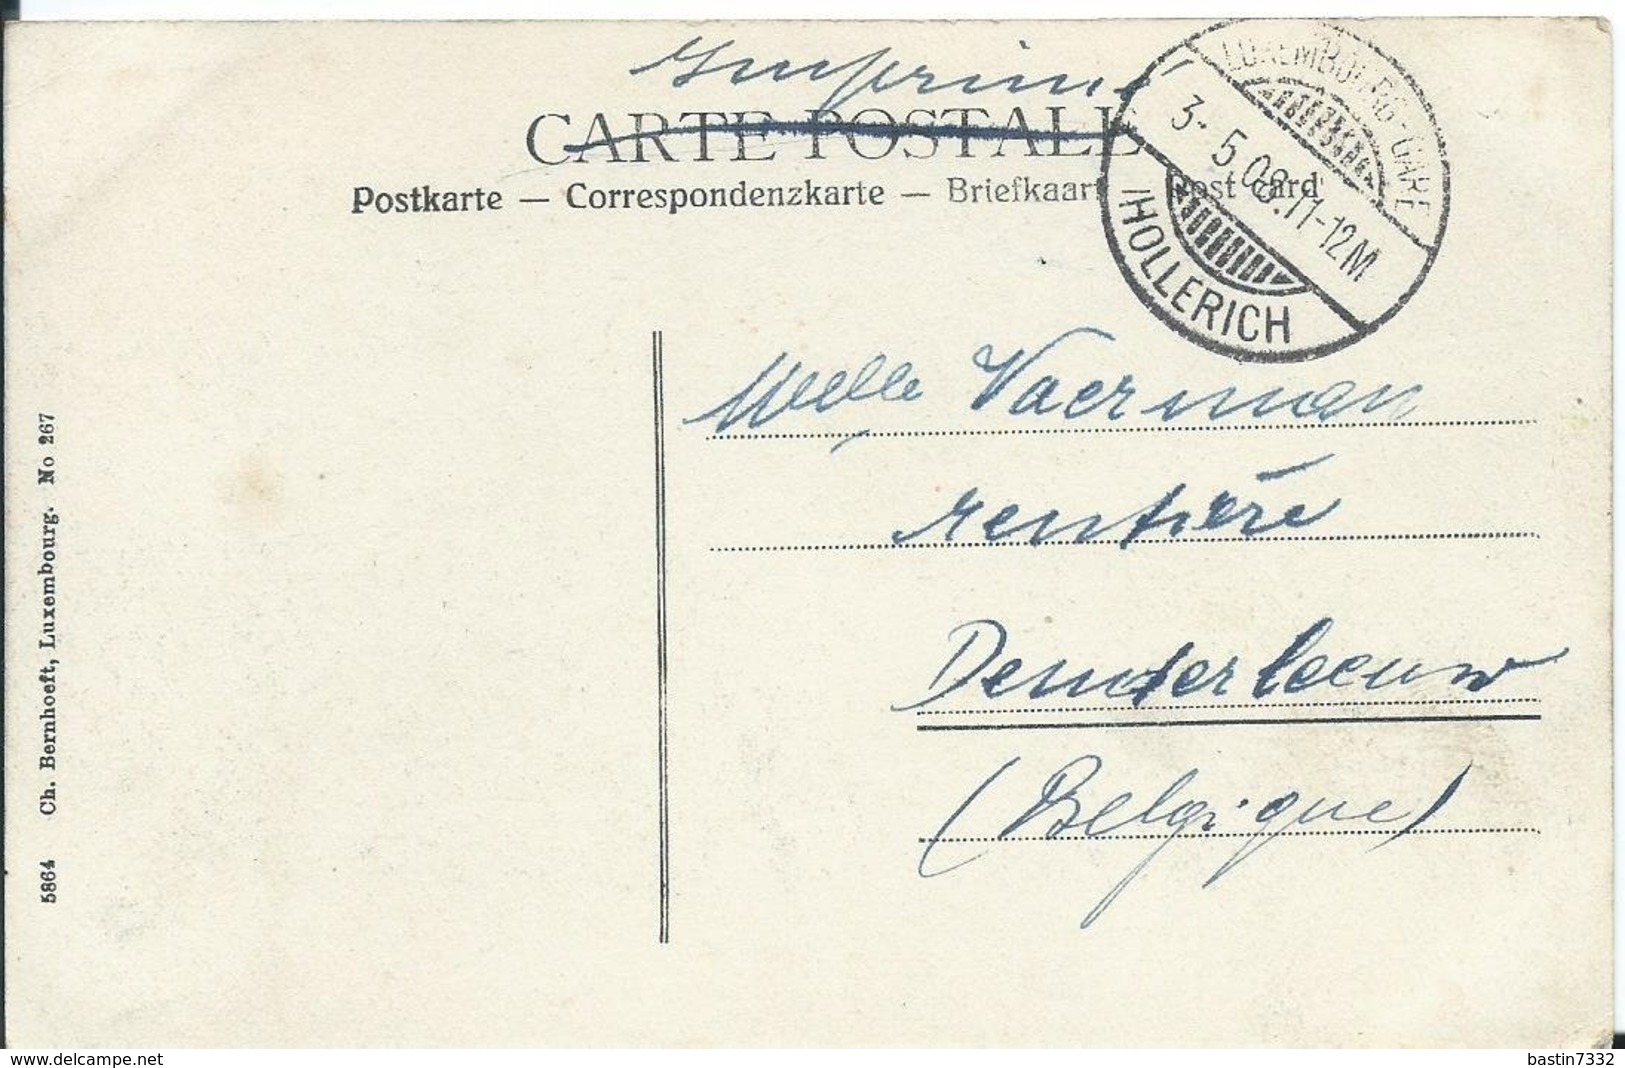 Imprimé
CARTE POSTALE
Postkarte — Correspondenzkarte — Briefkaart — Post card
LUXEMBOURG-GARE
3. 5.08.11-12M
HOLLERICH
Melle Vaerman
rentière
Denderleeuw
(Belgique)
5864 Ch. Bernhoeft, Luxembourg. No 267
www.delcampe.net
bastin7332